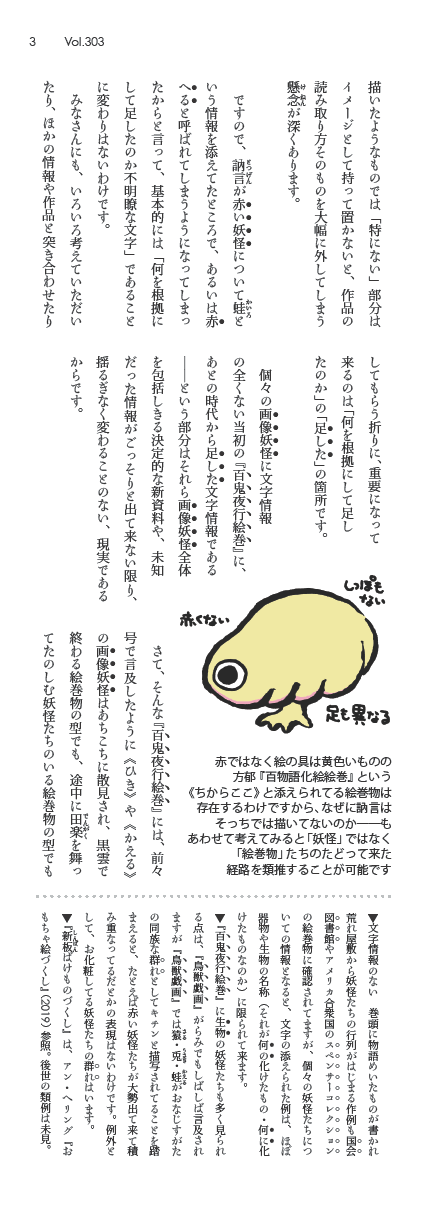 3
Vol.303
描いたようなものでは「特にない」部分は
イメージとして持って置かないと、作品の
読み取り方そのものを大幅に外してしまう
懸念が深くあります。
ですので、訥言が赤い妖怪について蛙と
いう情報を添えてたところで、あるいは赤
へると呼ばれてしまうようになってしまっ
たからと言って、基本的には「何を根拠に
して足したのか不明瞭な文字」であること
に変わりはないわけです。
みなさんにも、いろいろ考えていただい
たり、ほかの情報や作品と突き合わせたり
してもらう折りに、重要になって
来るのは「何を根拠にして足し
たのか」の「足した」の箇所です。
個々の画像妖怪に文字情報
の全くない当初の『百鬼夜行絵巻』に、
あとの時代から足した文字情報である
――という部分はそれら画像妖怪全体
を包括しきる決定的な新資料や、未知
だった情報がごっそりと出て来ない限り、
揺るぎなく変わることのない、現実である
からです。
しっぽも
ない
赤くない
足も異なる
赤ではなく絵の具は黄色いものの
方郁『百物語化絵絵巻』という
《ちからここ》と添えられてる絵巻物は
存在するわけですから、なぜに訥言は
そっちでは描いてないのか――も
あわせて考えてみると「妖怪」ではなく
「絵巻物」たちのたどって来た
経路を類推することが可能です
さて、そんな『百鬼夜行絵巻』には、前々
号で言及したように《ひき》や《かえる》
の画像妖怪はあちこちに散見され、黒雲で
終わる絵巻物の型でも、途中に田楽を舞っ
てたのしむ妖怪たちのいる絵巻物の型でも
▼文字情報のない 巻頭に物語めいたものが書かれ
荒れ屋敷から妖怪たちの行列がはじまる作例も国会
図書館やアメリカ合衆国のスペンサーコレクション
の絵巻物に確認されてますが、個々の妖怪たちにつ
いての情報となると、文字の添えられた例は、ほぼ
器物や生物の名称（それが何の化けたもの・何に化
けたものなのか）に限られて来ます。
▼『百鬼夜行絵巻』に生物の妖怪たちも多く見られ
る点は、『鳥獣戯画』がらみでもしばしば言及され
ますが『鳥獣戯画』では猿・兎・蛙がおなじすがた
の同族な群れとしてキチンと描写されてることを踏
まえると、たとえば赤い妖怪たちが大勢出て来て積
み重なってるだとかの表現はないわけです。例外と
して、お化粧してる妖怪たちの群れはいます。
▼『新板ばけものづくし』は、アン・ヘリング『お
もちゃ絵づくし』（2019）参照。後世の類例は未見。